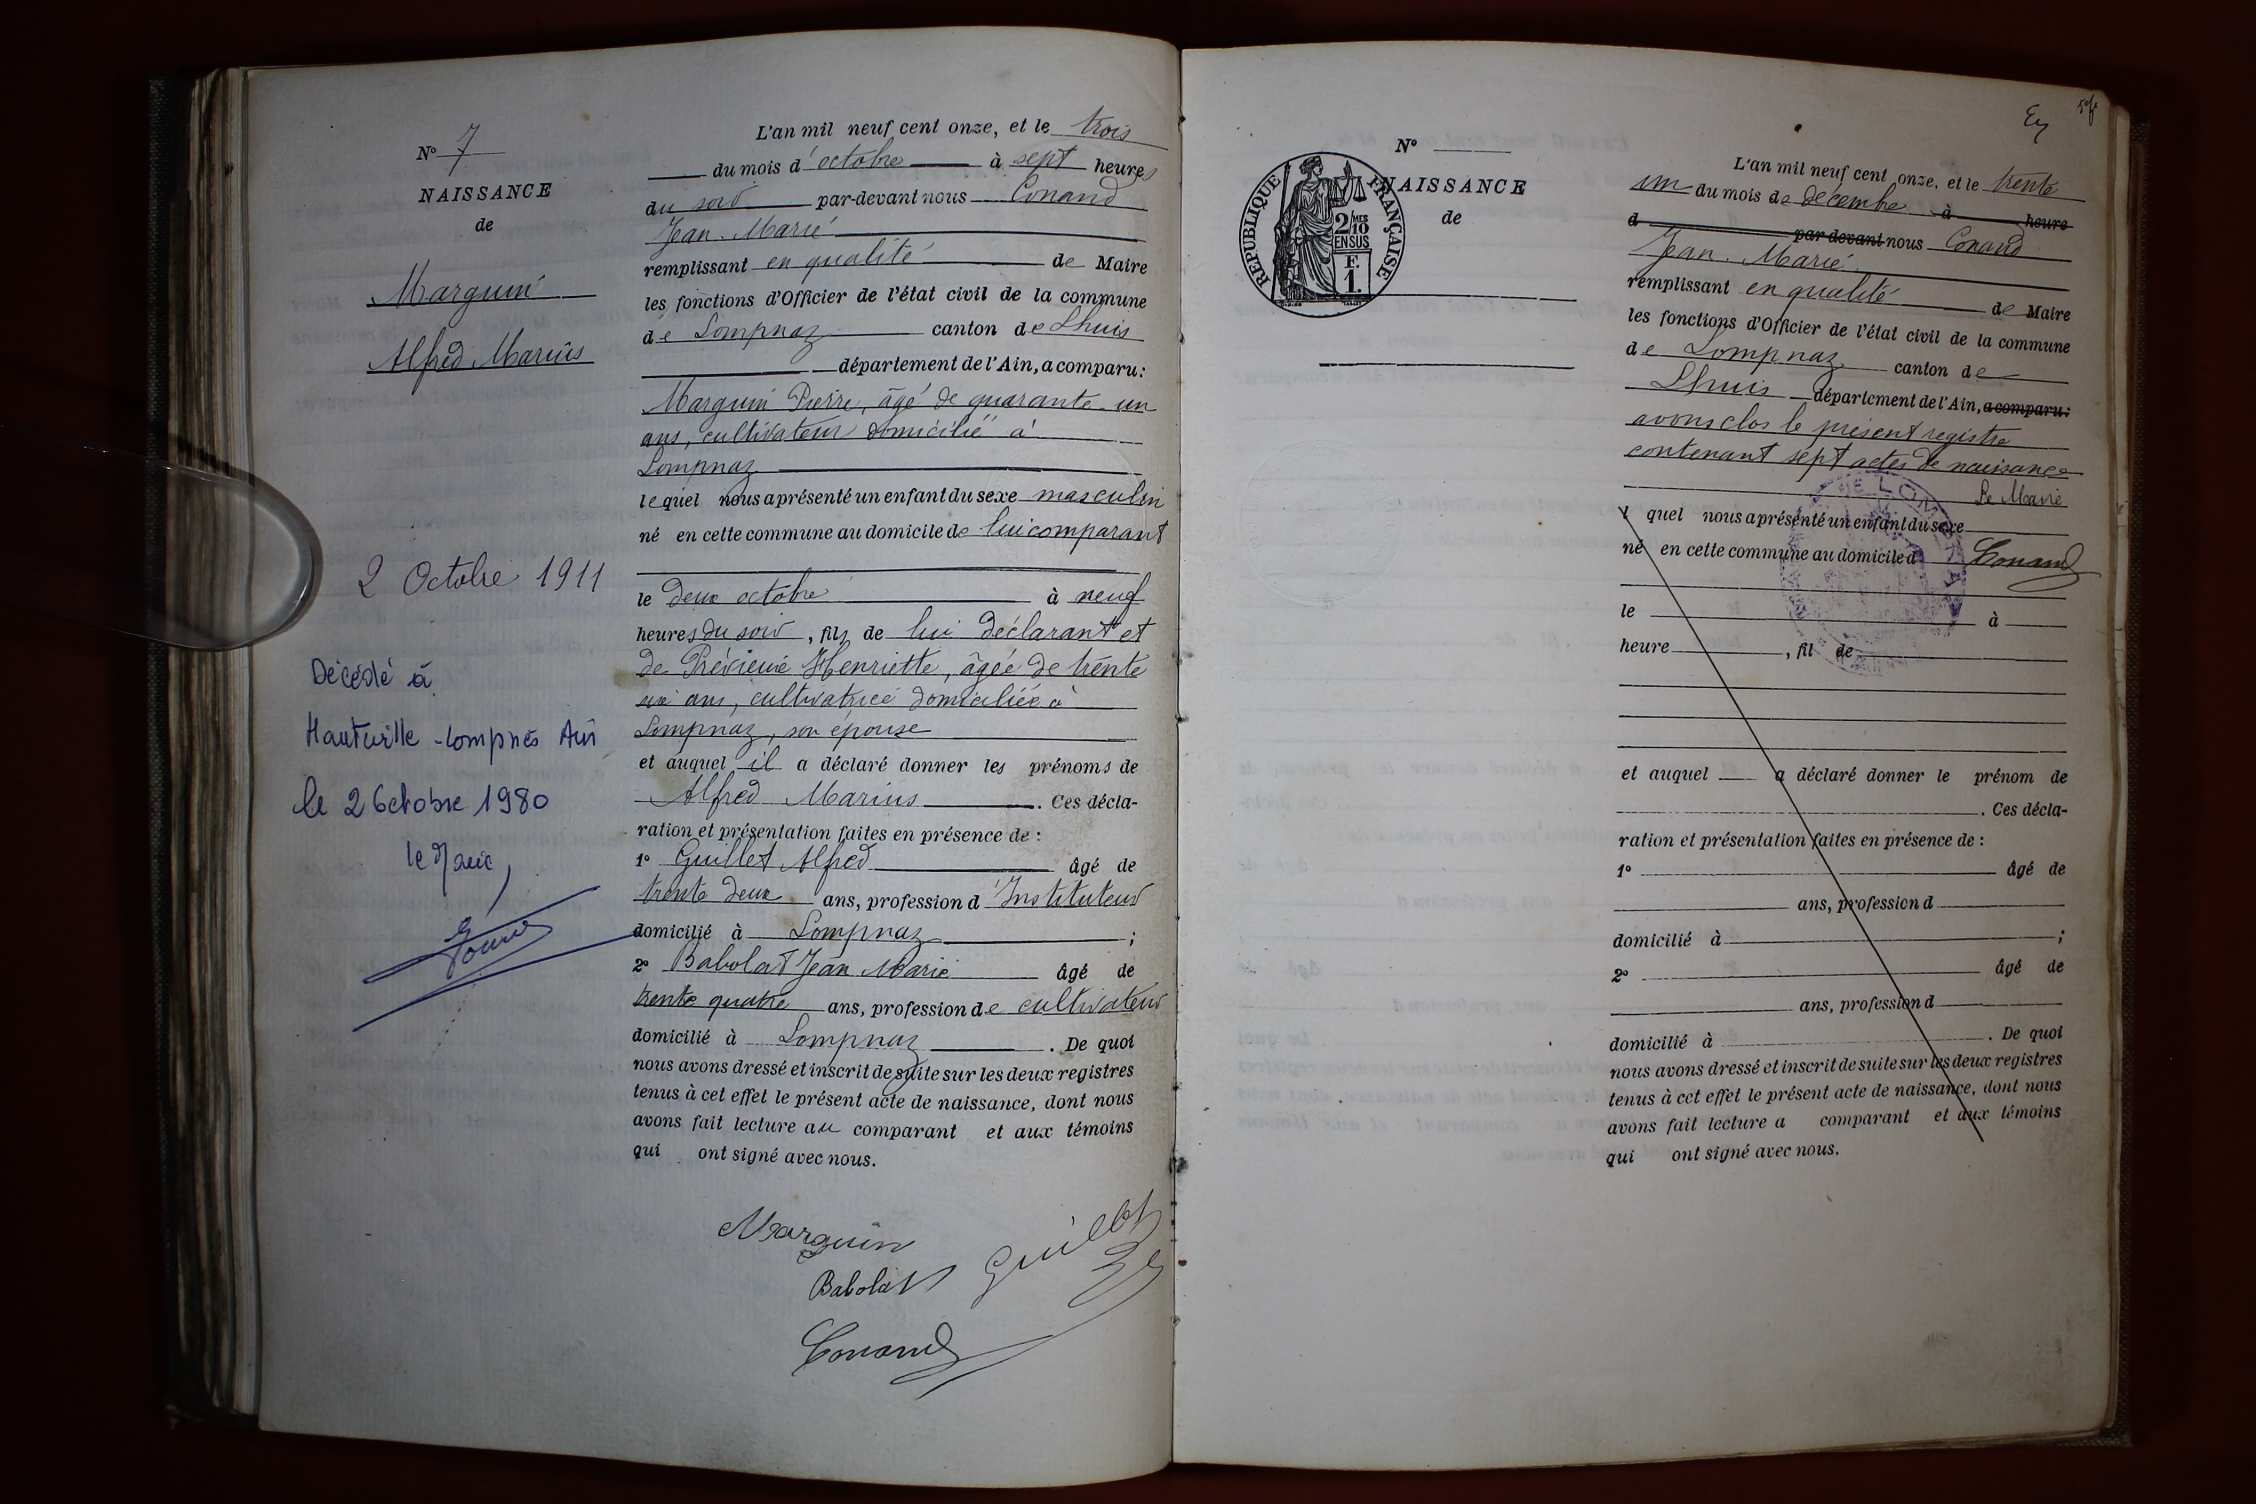 N° 7
NAISSANCE
de
Marguin
Alfred Marius
2 Octobre 1911
Décédé à
Hauteville-Lompnes Ain
le 2 Octobre 1980
le Maire,
L'an mil neuf cent onze, et le trois
du mois d'octobre à sept heures
du soir par-devant nous Conand
Jean-Marie
remplissant en qualité de Maire
les fonctions d'Officier de l'état civil de la commune
de Lompnaz canton de Lhuis
département de l'Ain, a comparu:
Marguin Pierre, âgé de quarante-un
ans, cultivateur domicilié à
Lompnaz
lequel nous a présenté un enfant du sexe masculin
né en cette commune au domicile de lui comparant
le deux octobre à neuf
heures du soir, fils de lui déclarant et
de Prévieux Henriette, âgée de trente
six ans, cultivatrice domiciliée à
Lompnaz, son épouse
et auquel il a déclaré donner les prénoms de
Alfred Marius. Ces décla-
ration et présentation faites en présence de :
1° Guillet Alfred âgé de
trente deux ans, profession d'Instituteur
domicilié à Lompnaz ;
2° Babolat Jean Marie âgé de
trente quatre ans, profession de cultivateur
domicilié à Lompnaz. De quoi
nous avons dressé et inscrit de suite sur les deux registres
tenus à cet effet le présent acte de naissance, dont nous
avons fait lecture au comparant et aux témoins
qui ont signé avec nous.
Marguin
Guillet
Babolat
Conand
N°
NAISSANCE
de
RÉPUBLIQUE FRANÇAISE
2/10MES
EN SUS
F.
1.
L'an mil neuf cent onze, et le trente
un du mois de décembre à heure
d par devant nous Conand
Jean-Marie
remplissant en qualité de Maire
les fonctions d'Officier de l'état civil de la commune
de Lompnaz canton de
Lhuis département de l'Ain, a comparu:
avons clos le présent registre
contenant sept actes de naissance
Le Maire
l quel nous a présenté un enfant du sexe
né en cette commune au domicile d
Conand
le à
heure , fil de
et auquel a déclaré donner le prénom de
. Ces décla-
ration et présentation faites en présence de :
1° âgé de
ans, profession d
domicilié à ;
2° âgé de
ans, profession d
domicilié à . De quoi
nous avons dressé et inscrit de suite sur les deux registres
tenus à cet effet le présent acte de naissance, dont nous
avons fait lecture a comparant et aux témoins
qui ont signé avec nous.